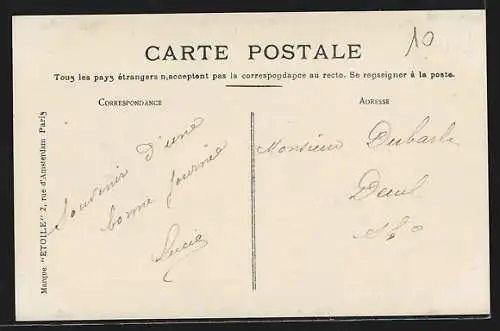 10
CARTE POSTALE
Tous les pays étrangers n,acceptent pas la correspondance au recto. Se renseigner à la poste.
CORRESPONDANCE
ADRESSE
Souvenir d'une
bonne journée
Lucie
Monsieur Dubarle
Deuil
S&O
Marque "ETOILE" 2, rue d'Amsterdam Paris